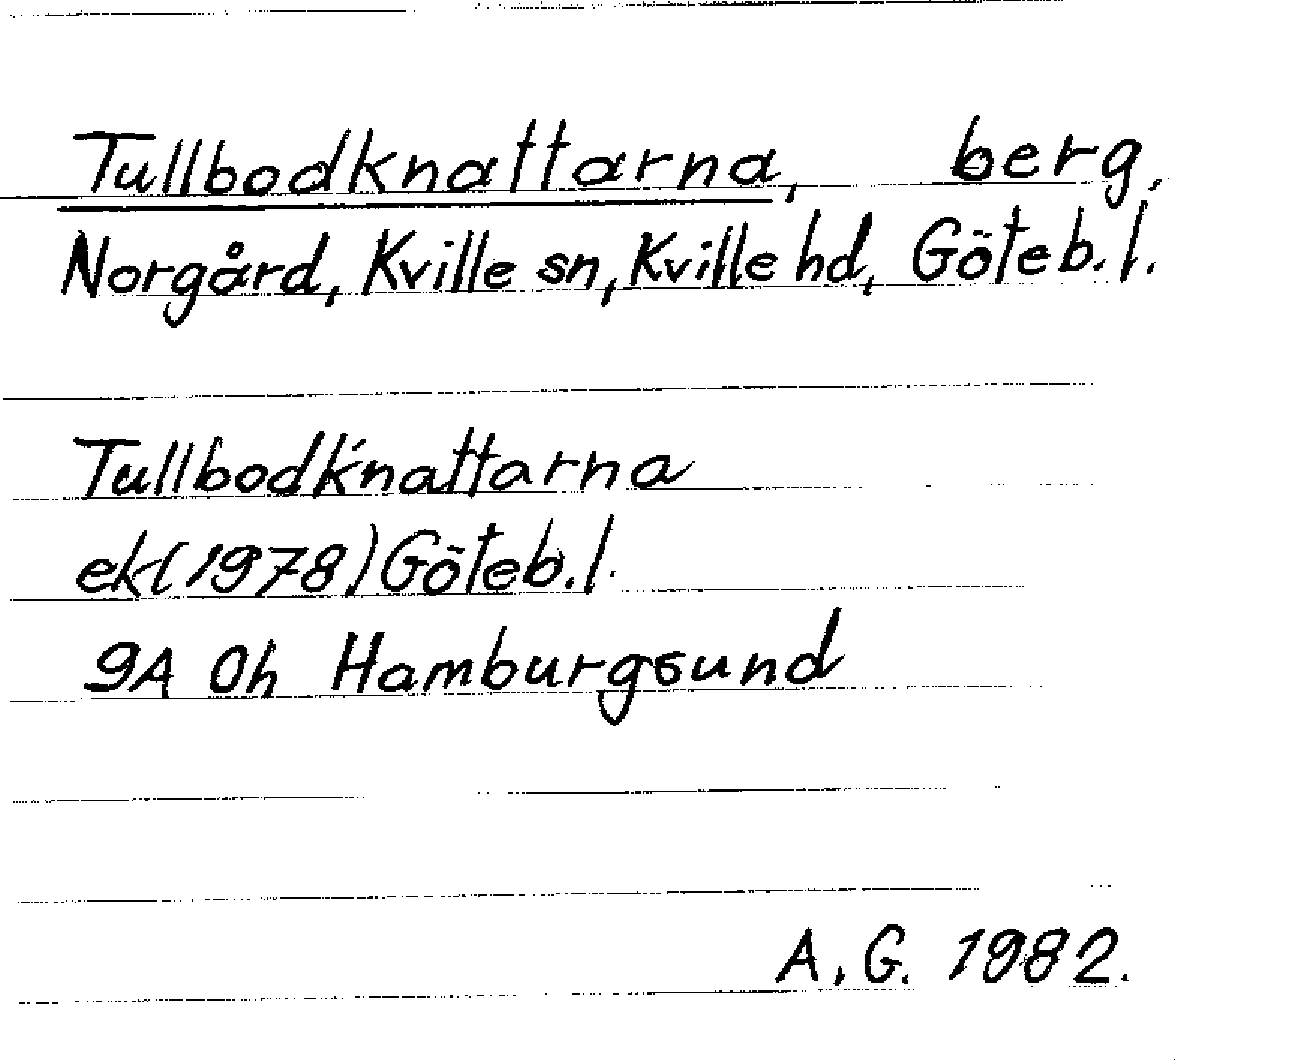 Tullbodknattarna, berg,
Norgård, Kville sn, Kville hd, Göteb. l.
Tullbodknattarna
ek (1978) Göteb. l.
9A 0h Hamburgsund
A. G. 1982.